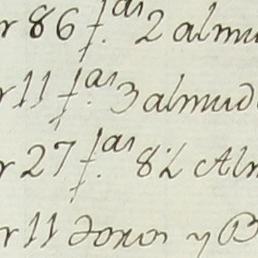 r 86 f.as 2 almu
r 11 f.as 3 almud
r 27 f.as 8 1/2 Alm
r 11 y